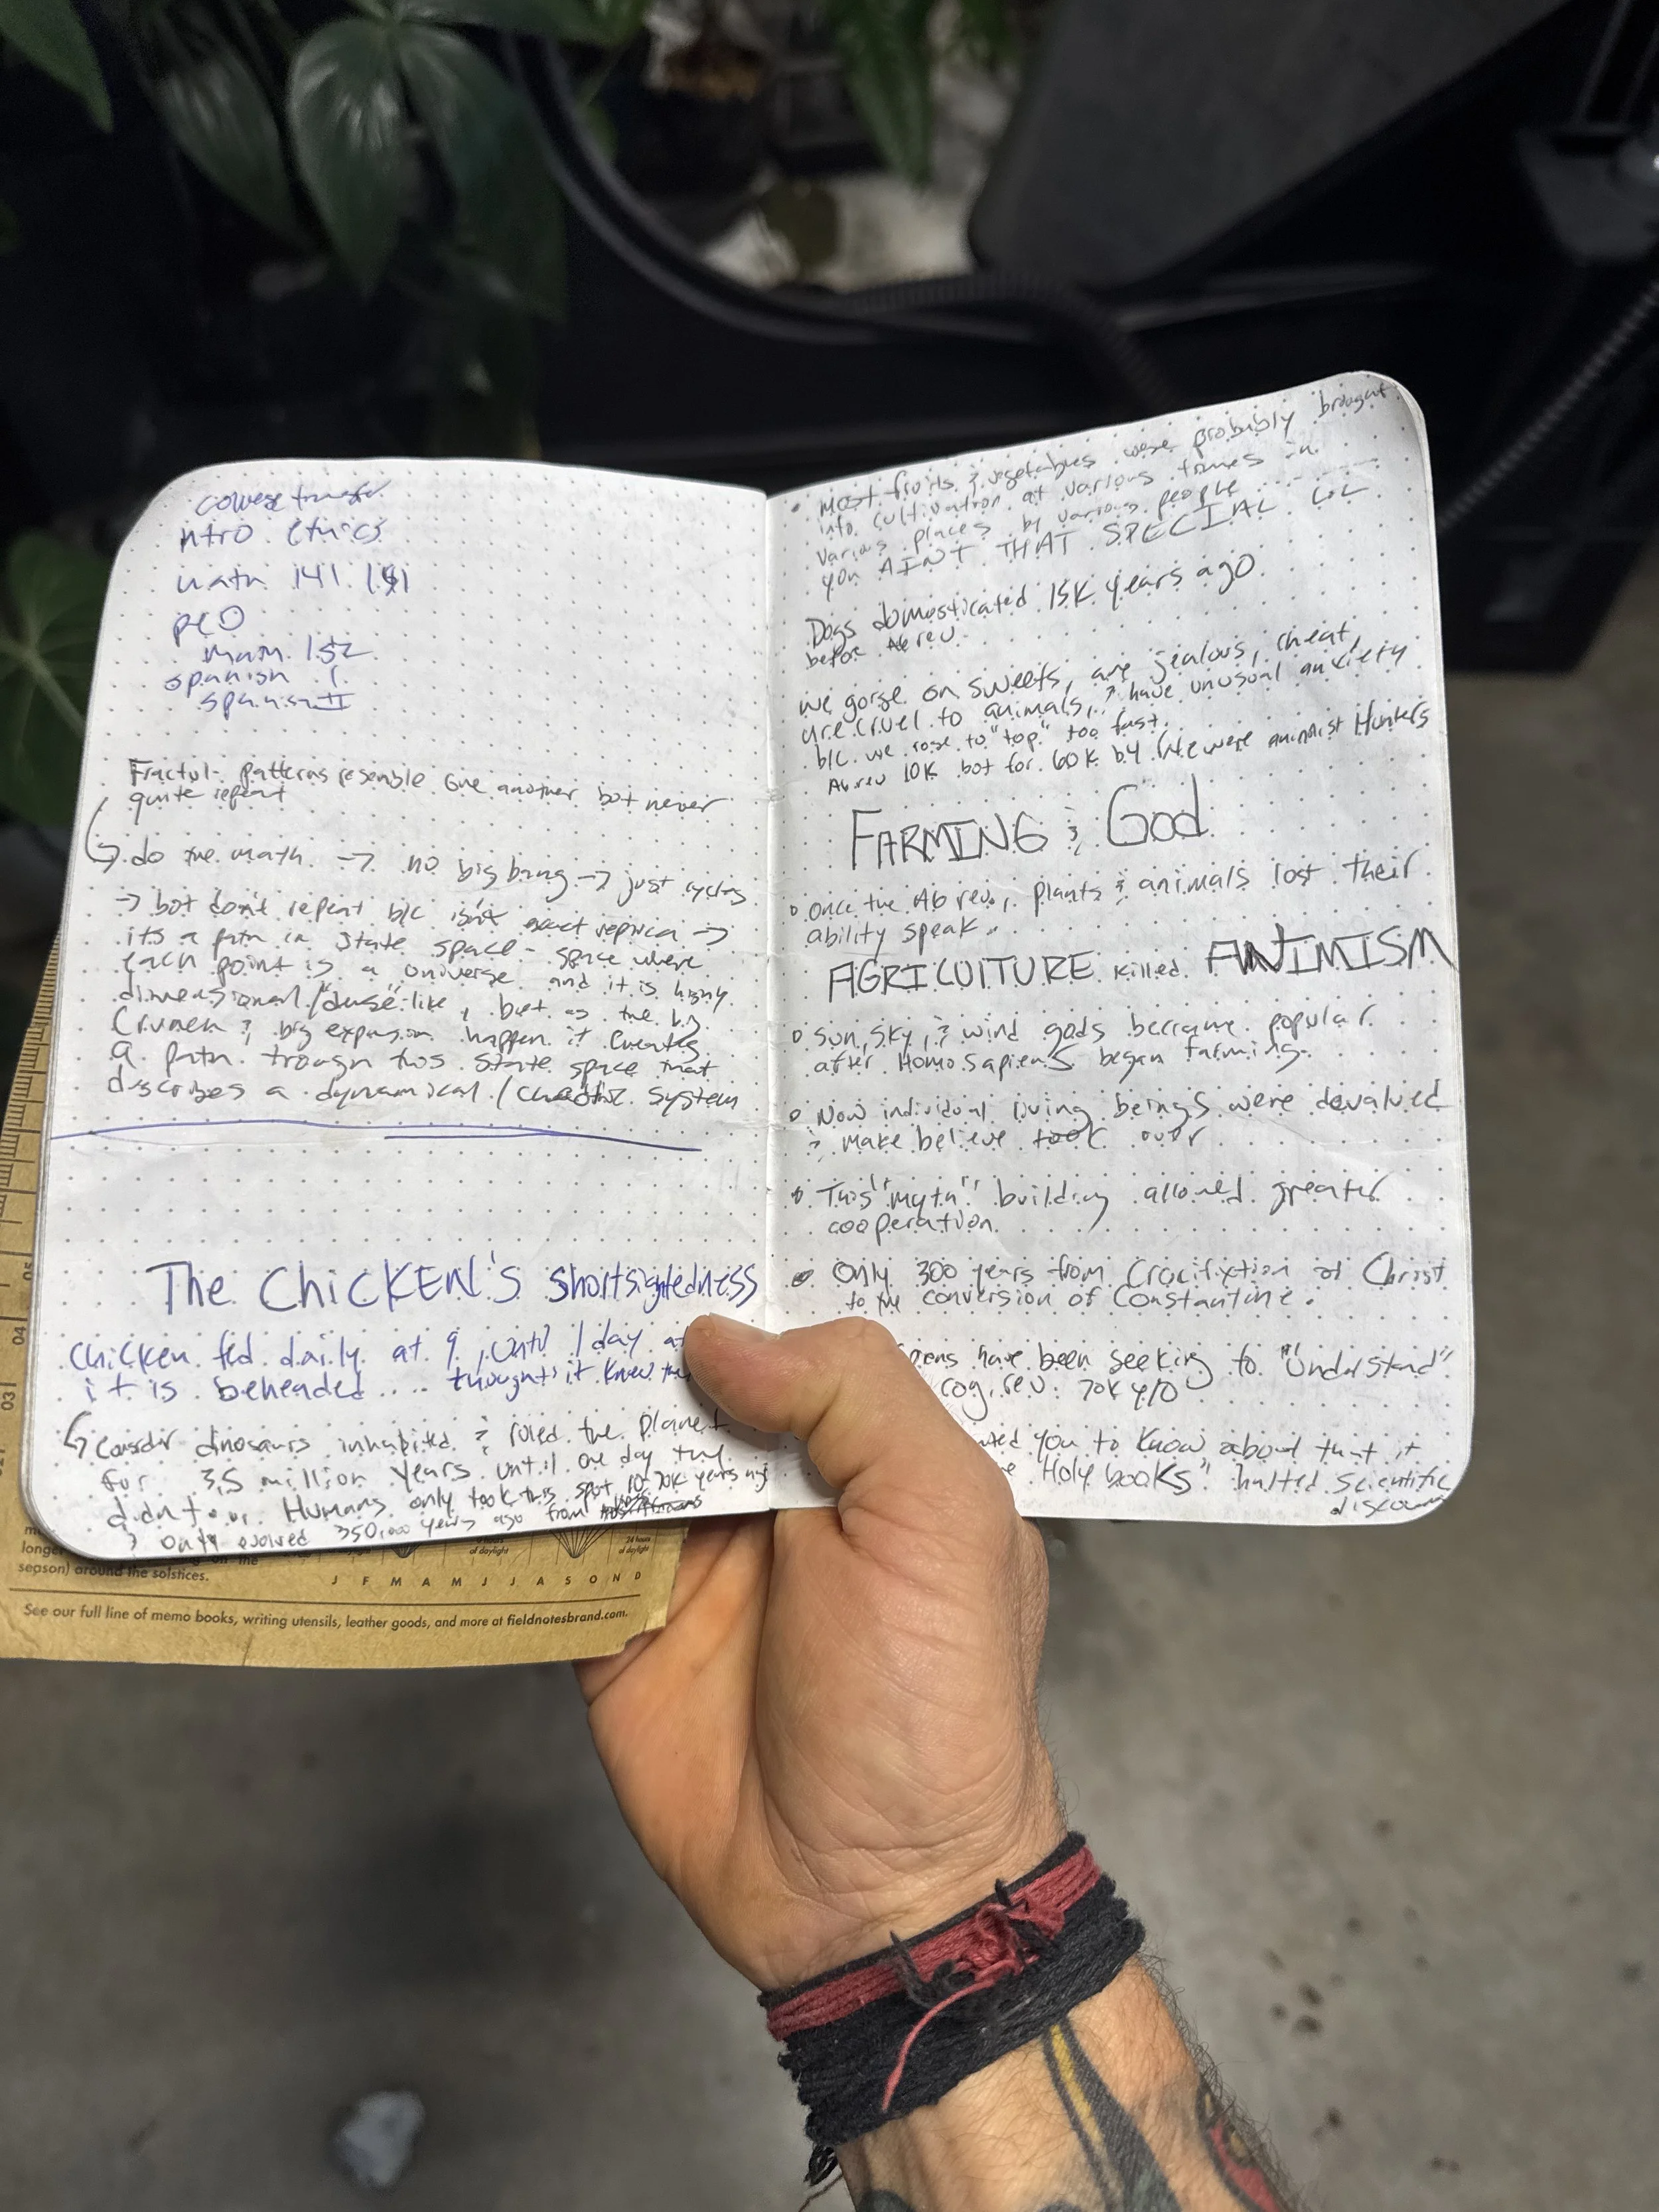 college transfer
ntro ethics
math 141 151
pcO
math 152
spanish I
spanish II
Fractul- patterns resemble one another bot never
quite repeat
do the math → no big bang → just cycles
→ bot don't repeat b/c isn't exact replica →
its a path in state space - space where
each point is a "universe" and it is highly
dimensional / like, but as the big
Crunch & big expansion happen it creates
a path trough this state space that
describes a dynamical / chaotic system
The CHICKEN'S shortsightedness
Chicken fed daily at 9, until 1 day at
it is beheaded .... thought it knew the
Consider dinosaurs inhabited & ruled the planet
for 35 million years until one day they
didn't or Humans only took this spot 10-70K years ago
& only evolved 350,000 years ago from
most fruits & vegetables were probably brought
into cultivation at various times in
various places by various people
you AINT THAT SPECIAL
Dogs domesticated 15K years ago
before Ag rev.
we gorge on sweets, are jealous, cheat,
are cruel to animals, & have unusual anxiety
b/c we rose to "top" too fast.
Ag rev 10K bot for 60K b4 we were animist Hunters
FARMING & God
once the Ag rev, plants & animals lost their
ability speak
AGRICULTURE killed ANIMISM
sun, sky, & wind gods became popular
after Homo sapiens began farming.
Now individual living beings were devalued
& make believe took over
This "myth" building allowed greater
cooperation.
Only 300 years from Crucifixtion of Christ
to the conversion of Constantine.
piens have been seeking to "Understand"
cog. rev. 70K y/o
nted you to know about that it
e Holy books" halted scientific
discovery
m
longe
season) around the solstices.
on the
24 hours
of daylight
of daylight
J F M A M J J A S O N D
See our full line of memo books, writing utensils, leather goods, and more at fieldnotesbrand.com.
05
04
03